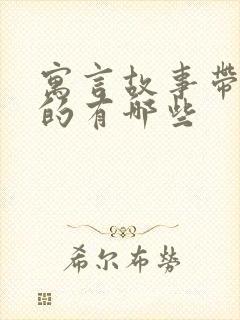 寓言故事带
的有哪些
希尔布劳